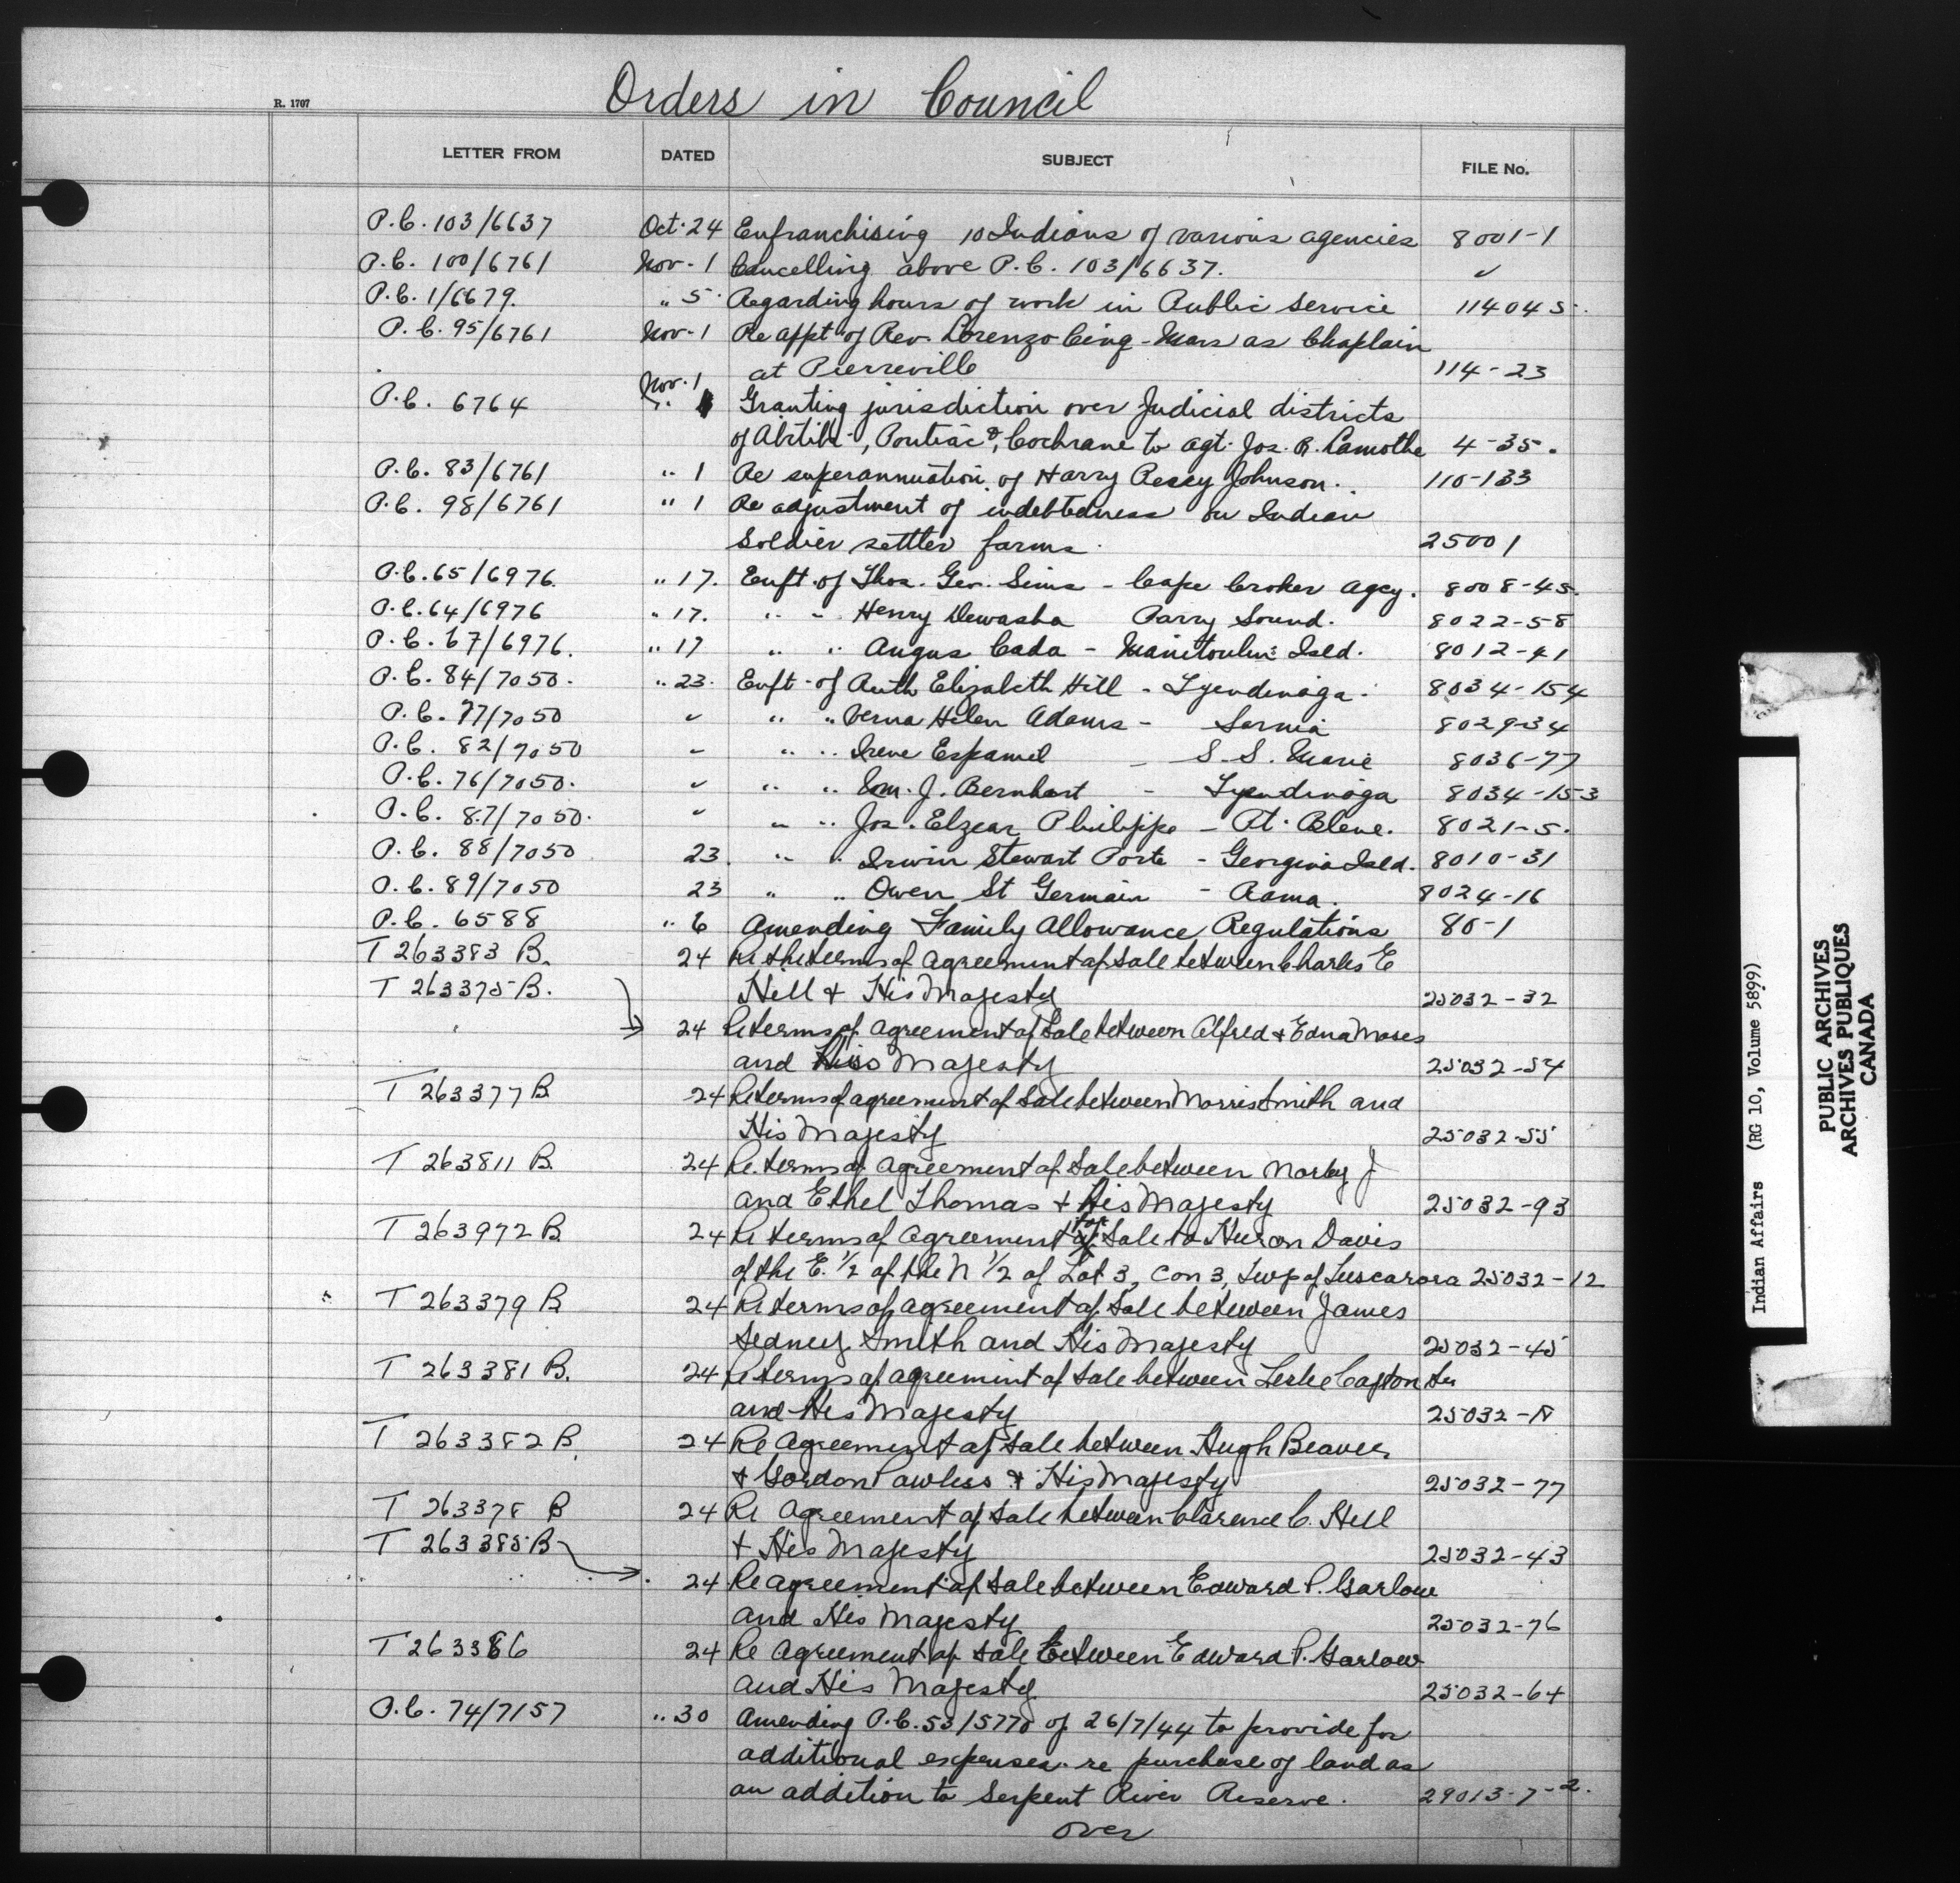 R. 1707
Orders in Council
LETTER FROM DATED SUBJECT FILE No.
P.C. 103/6637 Oct. 24 Enfranchising 10 Indians of various agencies 8001-1
P.C. 100/6761 Nov. 1 Cancelling above P.C. 103/6637. "
P.C. 1/6679. " 5 Regarding hours of work in Public Service 11404 5.
P.C. 95/6761 Nov. 1 Re appt of Rev. Lorenzo Cinq-Mars as Chaplain
at Pierreville 114-23
Nov. 1
P.C. 6764 Granting jurisdiction over Judicial districts
of Abitibi, Pontiac & Cochrane to Agt. Jos. R. Lamothe 4-35.
P.C. 83/6761 " 1 Re superannuation of Harry Percy Johnson. 110-133
P.C. 98/6761 " 1 Re adjustment of indebtedness on Indian
Soldier settler farms. 25001
P.C. 65/6976. " 17. Enft. of Thos. Geo. Sims - Cape Croker Agcy. 8008-45.
P.C. 64/6976 " 17. " " Henry Dewasha Parry Sound. 8022-58
P.C. 67/6976. " 17 " " Angus Cada - Manitoulin Isld. 8012-41
P.C. 84/7050. " 23. Enft. of Ruth Elizabeth Hill - Tyendinaga. 8034-154
P.C. 77/7050 " " " Verna Helen Adams - Sarnia 8029-34
P.C. 82/7050 " " " Irene Espaniel - S. S. Marie 8036-77
P.C. 76/7050. " " " Wm. J. Bernhart - Tyendinaga 8034-153
P.C. 87/7050. " " " Jos. Elzear Philippe - Pt. Bleue. 8021-5.
P.C. 88/7050 23 " " Irwin Stewart Porte - Georgina Isld. 8010-31
P.C. 89/7050 23 " " Owen St Germain - Rama. 8024-16
P.C. 6588 " 6 Amending Family Allowance Regulations 80-1
T 263383 B. 24 Re the terms of Agreement of Sale between Charles E
T 263375 B. Hill & His Majesty 25032-32
24 Re terms of Agreement of Sale between Alfred & Edna Moses
and His Majesty 25032-54
T 263377 B 24 Re terms of agreement of Sale between Morris Smith and
His Majesty 25032-55
T 263811 B. 24 Re. terms of Agreement of Sale between J
and Ethel Thomas & His Majesty 25032-93
T 263972 B. 24 Re terms of Agreement for Sale to Huron Davis
of the E. 1/2 of the N 1/2 of Lot 3, Con 3, Twp of Tuscarora 25032-12
T 263379 B 24 Re terms of agreement of Sale between James
Sidney Smith and His Majesty 25032-45
T 263381 B. 24 Re terms of agreement of Sale between Leslie
and His Majesty 25032-
T 263382 B. 24 Re Agreement of Sale between Hugh Beaver
& Gordon Powless & His Majesty 25032-77
T 263378 B 24 Re Agreement of Sale between Clarence C. Hill
T 263385 B & His Majesty 25032-43
24 Re agreement of Sale between Edward P. Garlow
and His Majesty 25032-76
T 263386 24 Re Agreement of Sale Between Edward P. Garlow
and His Majesty 25032-64
P.C. 74/7157 " 30 Amending P.C. 53/5770 of 26/7/44 to provide for
additional expenses re purchase of land as
an addition to Serpent River Reserve. 29013-7-2.
over
Indian Affairs (RG 10, Volume 5899)
PUBLIC ARCHIVES
ARCHIVES PUBLIQUES
CANADA